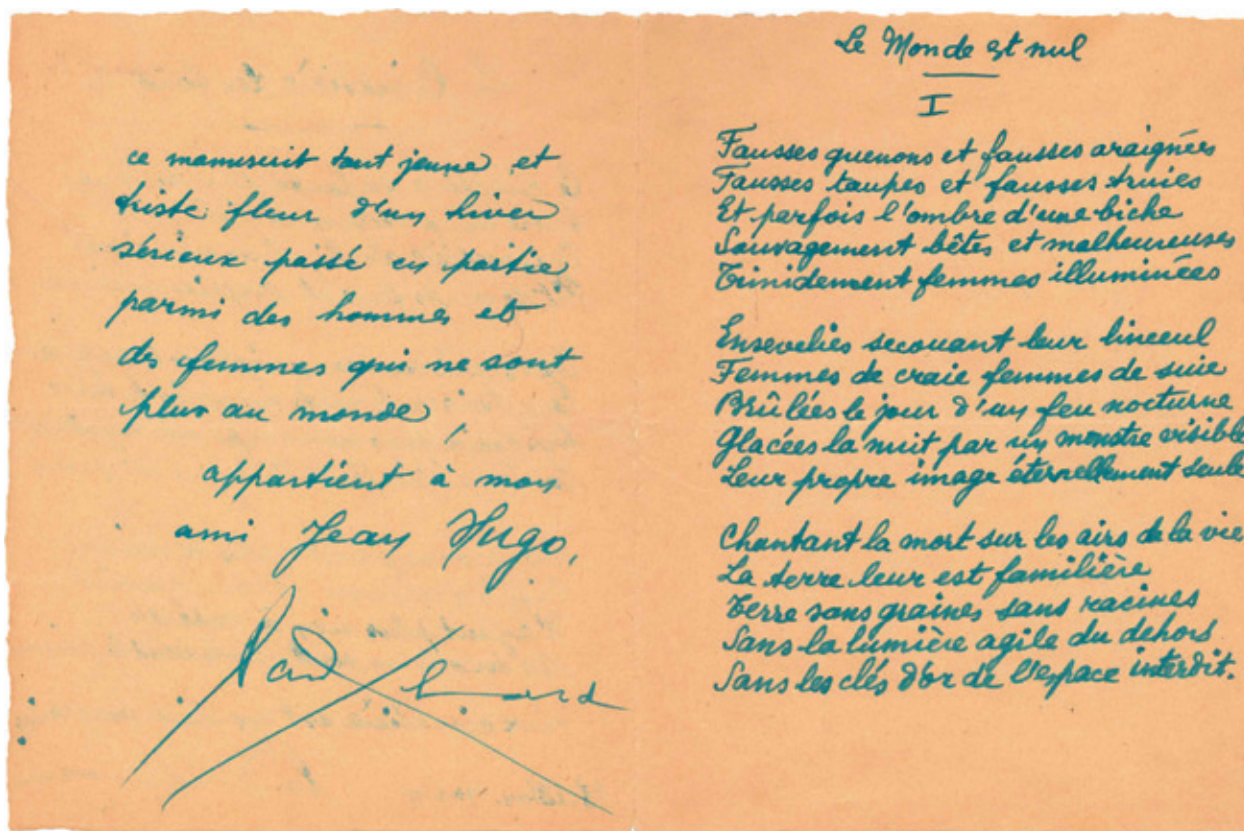 ce manuscrit tout jeune et
triste fleur d'un hiver
sérieux passé en partie
parmi des hommes et
des femmes qui ne sont
plus au monde,
appartient à mon
ami Jean Hugo,
Paul Eluard
Le Monde est nul
I
Fausses guenons et fausses araignées
Fausses taupes et fausses truies
Et parfois l'ombre d'une biche
Sauvagement bêtes et malheureuses
Timidement femmes illuminées
Ensevelies secouant leur linceul
Femmes de craie femmes de suie
Brûlées le jour d'un feu nocturne
Glacées la nuit par un monstre visible
Leur propre image éternellement seule
Chantant la mort sur les airs de la vie
La terre leur est familière
Terre sans graines sans racines
Sans la lumière agile du dehors
Sans les clés d'or de l'espace interdit.